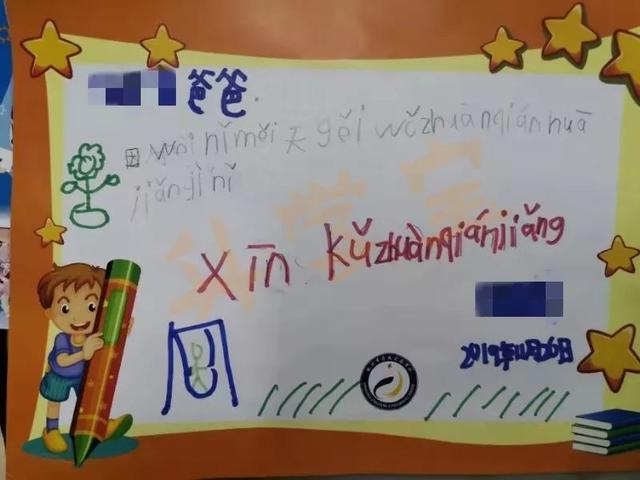 爸爸
田 wèi nǐ měi 天 gěi wǒzhuànqiánhuā
jiǎngjìnǐ
xīn kǔzhuànqiánjiǎng
2019年11月26日